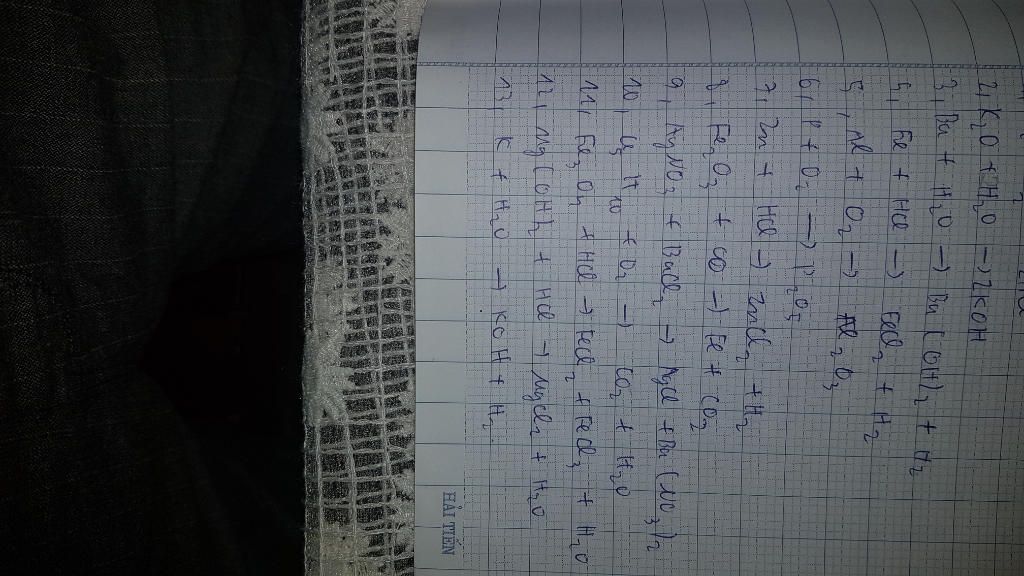 2, K₂O + H₂O → 2KOH
3, Ba + H₂O → Ba(OH)₂ + H₂
4, Fe + HCl → FeCl₂ + H₂
5, Al + O₂ → Al₂O₃
6, P + O₂ → P₂O₅
7, Zn + HCl → ZnCl₂ + H₂
8, Fe₂O₃ + CO → Fe + CO₂
9, AgNO₃ + BaCl₂ → AgCl + Ba(NO₃)₂
10, H₁₀ + O₂ → CO₂ + H₂O
11, + HCl → FeCl₂ + FeCl₃ + H₂O
12, Mg(OH)₂ + HCl → MgCl₂ + H₂O
13, K + H₂O → KOH + H₂
HẢI TIẾN